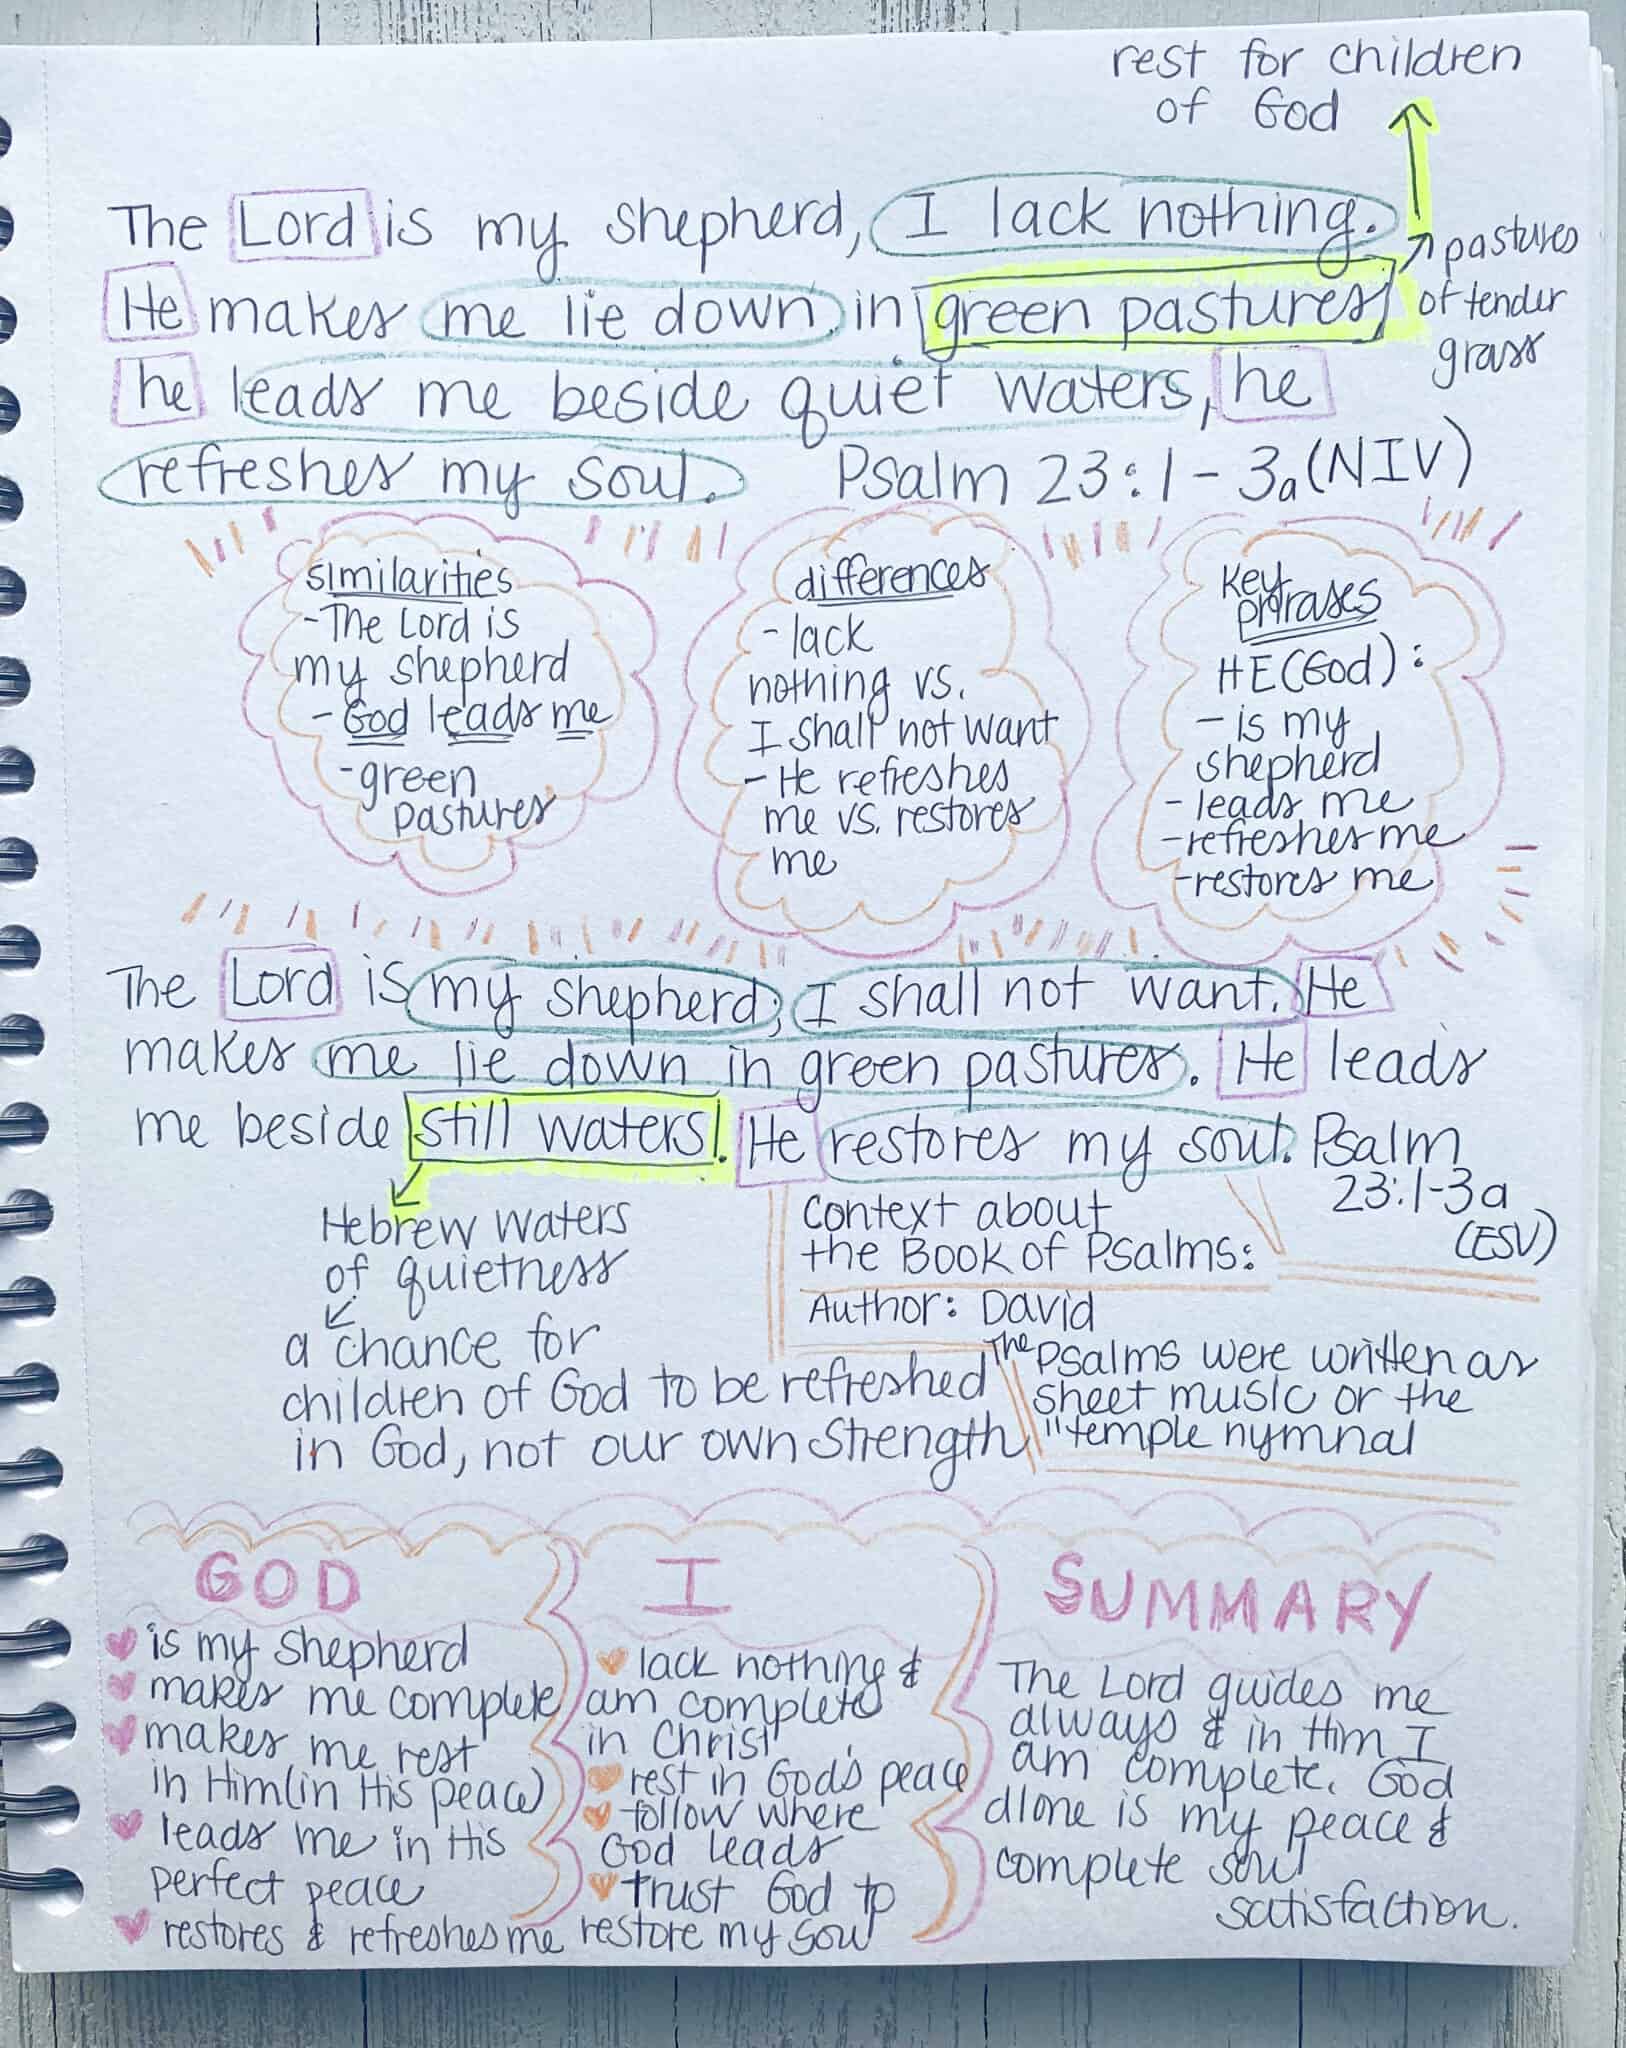 rest for children
of God
The Lord is my shepherd, I lack nothing.
He makes me lie down in green pastures,
he leads me beside quiet waters, he
refreshes my soul. Psalm 23:1-3a (NIV)
pastures
of tender
grass
similarities
-The Lord is
my shepherd
-God leads me
-green
pastures
differences
-lack
nothing vs.
I shall not want
-He refreshes
me vs. restores
me
key
phrases
HE (God):
-is my
shepherd
-leads me
-refreshes me
-restores me
The Lord is my shepherd; I shall not want. He
makes me lie down in green pastures. He leads
me beside still waters. He restores my soul. Psalm
23:1-3a
(ESV)
Hebrew waters
of quietness
a chance for
children of God to be refreshed
in God, not our own strength
Context about
the Book of Psalms:
Author: David
The Psalms were written as
sheet music or the
"temple hymnal
GOD
is my shepherd
makes me complete
makes me rest
in Him (in His peace)
leads me in His
perfect peace
restores & refreshes me
I
lack nothing &
am complete
in Christ
rest in God's peace
follow where
God leads
trust God to
restore my soul
SUMMARY
The Lord guides me
always & in Him I
am complete. God
alone is my peace &
complete soul
satisfaction.